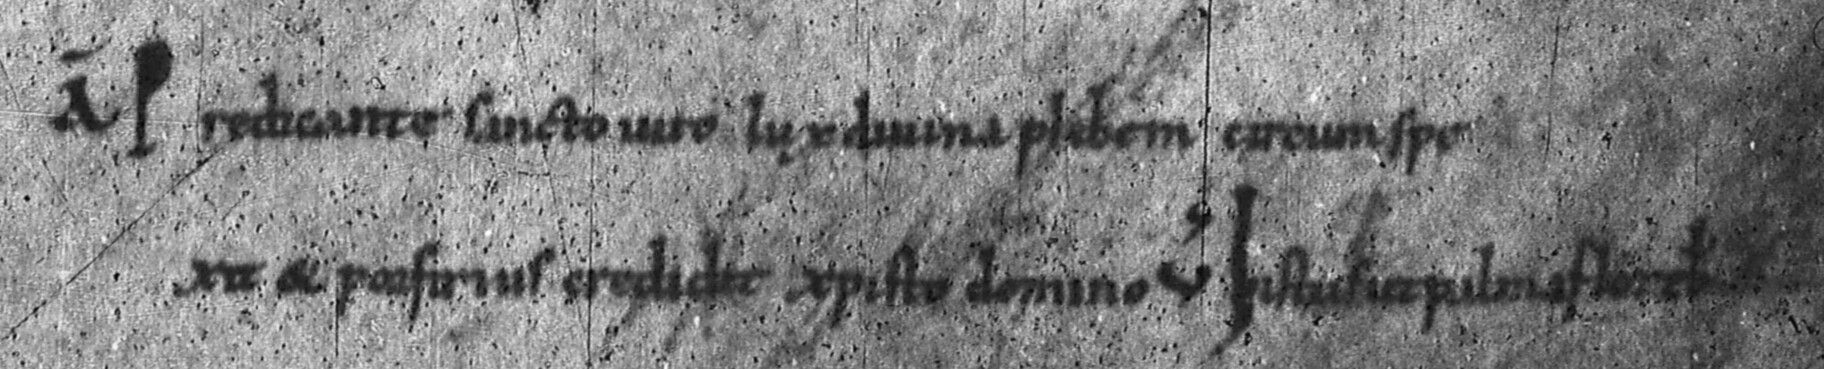 ā Predicante sancto uiro lux diuina plebem circumspe
xit & porfirius credidit xpisto domino V Iustus ut palma florebit